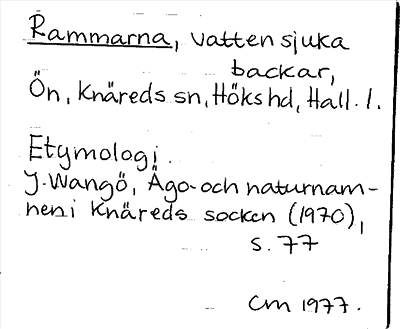 Rammarna, vattensjuka
backar,
Ön, Knäreds sn, Höks hd, Hall. l.
Etymologi.
J. Wangö, Ägo- och naturnam-
nen i Knäreds socken (1970),
s. 77
CM 1977.